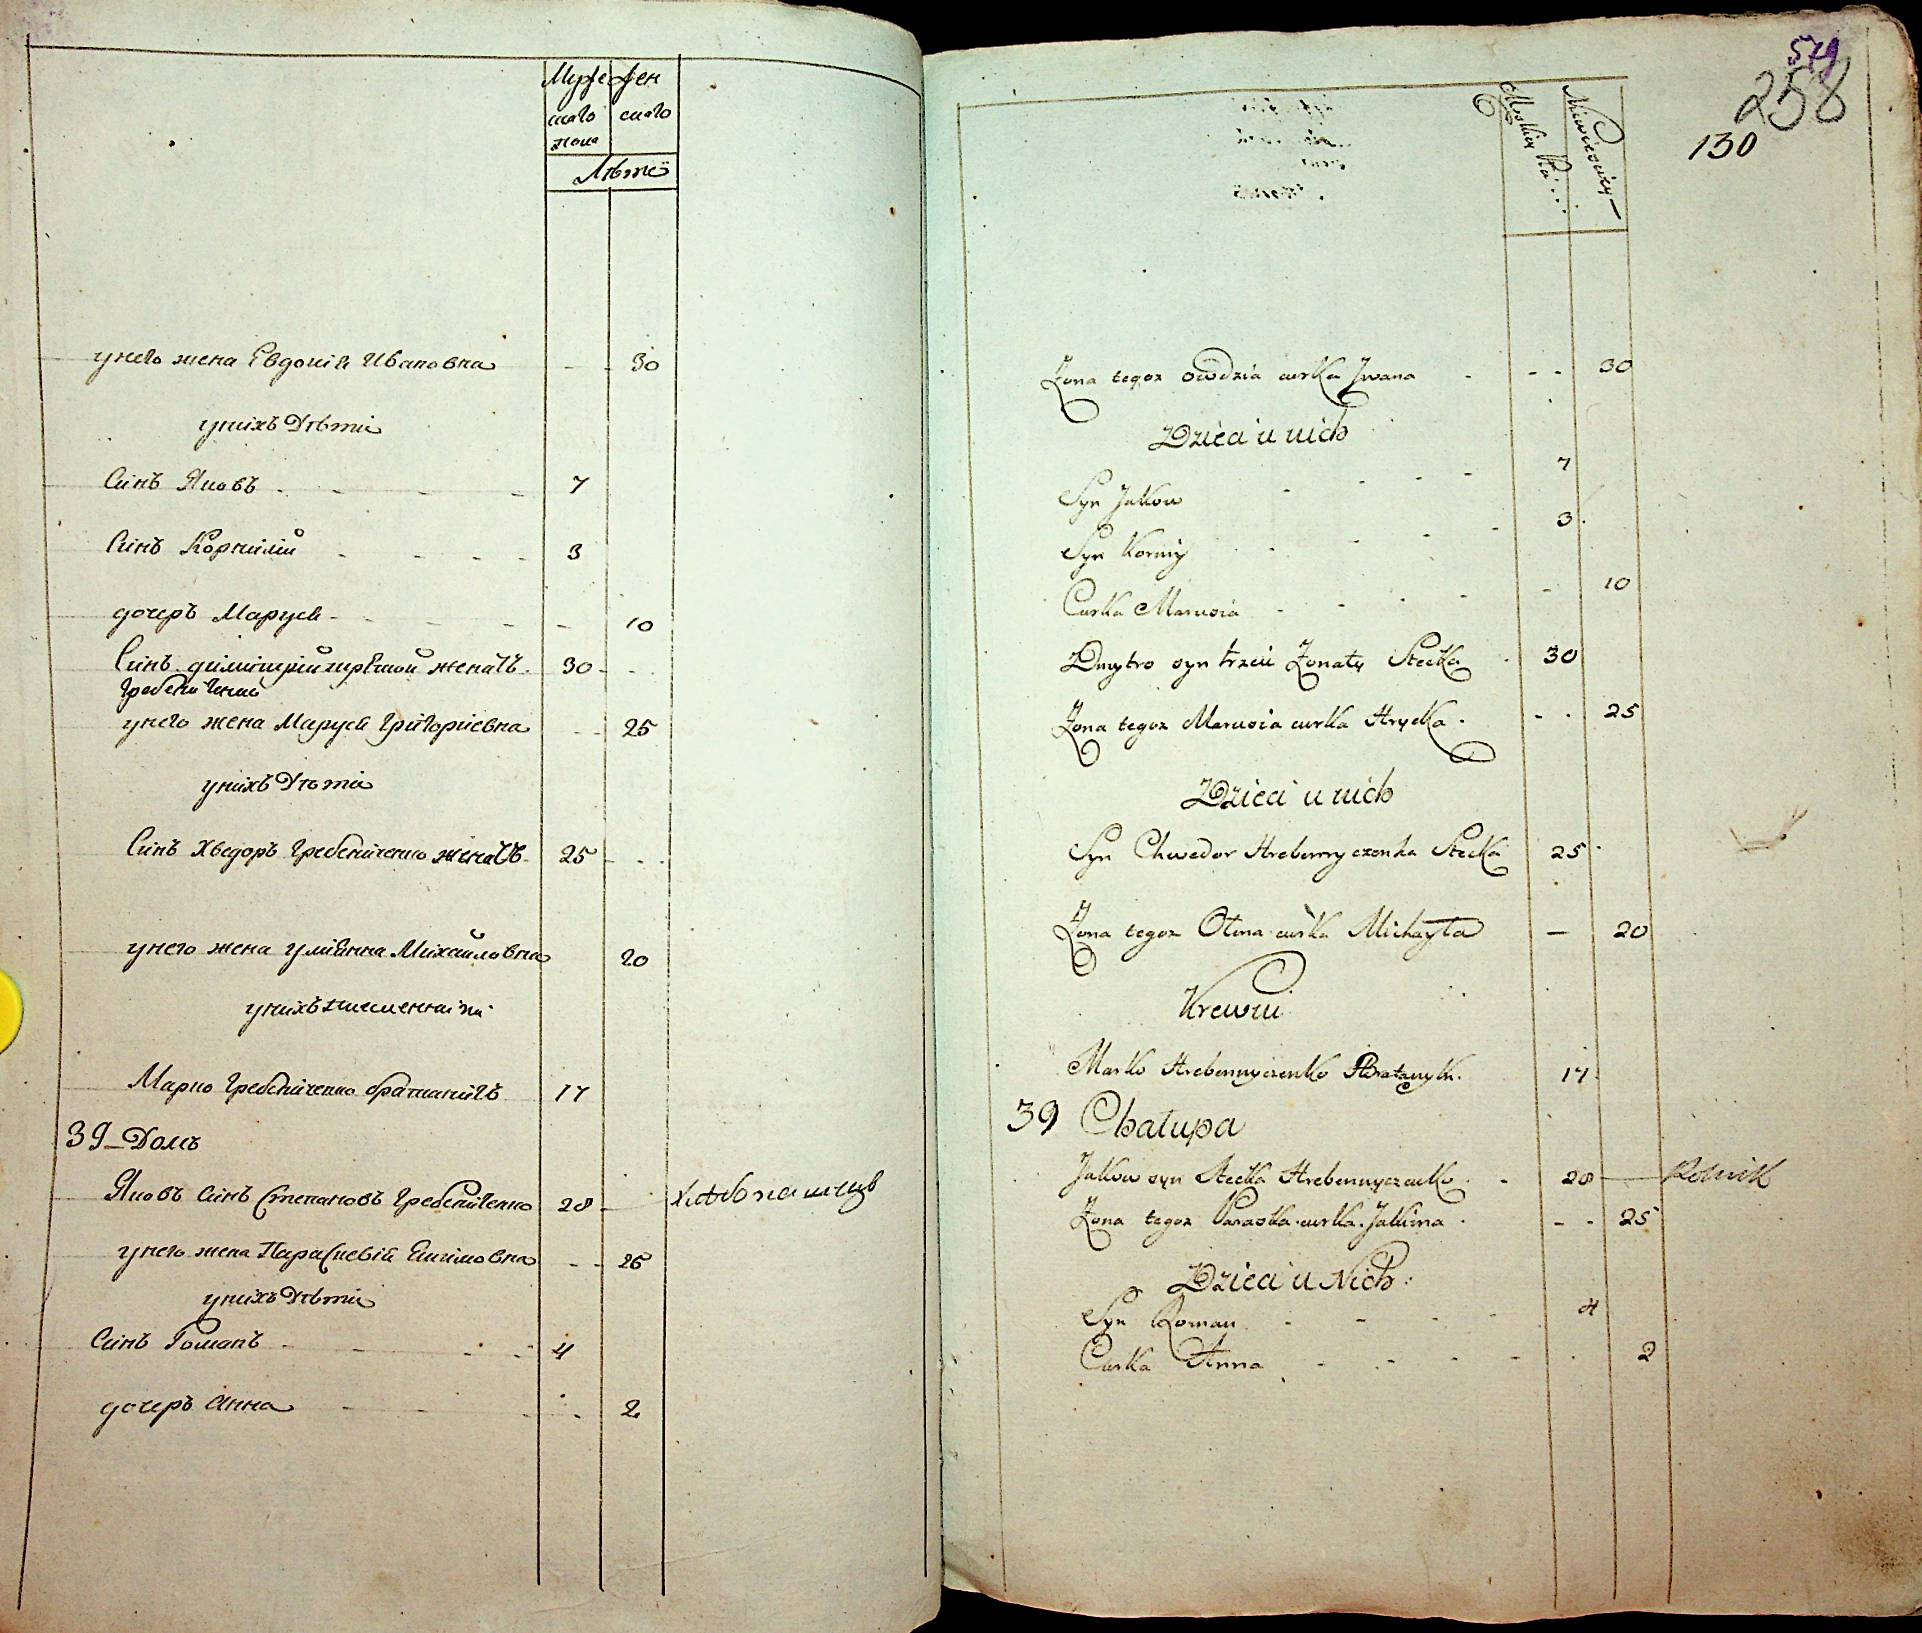 Муже жен
скаго скаго
пола
Лѣта
у него жена Евдокія Ивановна 30
у нихъ дѣти
Синъ Яковъ 7
Синъ Корнилій 3
дочеръ Маруся 10
Синъ димитрій третой женатъ 30
Гребениченко
у него жена Маруся Григоріевна 25
у нихъ дѣти
Синъ Хведоръ Гребениченко женатъ 25
у него жена Уліянна Михайловна 20
у нихъ племенники
Марко Гребениченко братаничъ 17
39 Домъ
Яковъ Синъ Степановъ Гребениченко 28 хлѣбопашецъ
у него жена Параскевія Екимовна 25
у нихъ дѣти
Синъ Романъ 4
дочеръ Анна 2
579
258
130
Męskiey Niewiesciey
Żona tegoz Owdzia curka Jwana 30
Dzieci u nich
Syn Jakow 7
Syn Korniy 3
Curka Marusia 10
Dmytro syn trzeci Żonaty Stecka 30
Żona tegoz Marusia curka Hrycka 25
Dzieci u nich
Syn Chwedor Hrebennyczenka Stecka 25
Żona tegoz curka Michayła 20
Krewni
Marko Hrebennyczenko Bratanyk 17
39 Chałupa
Jakow syn Stecka Hrebennyczenko 28 Rolnik
Żona tegoz Paraska curka Jakima 25
Dzieci u Nich
Syn Roman 4
Curka Anna 2